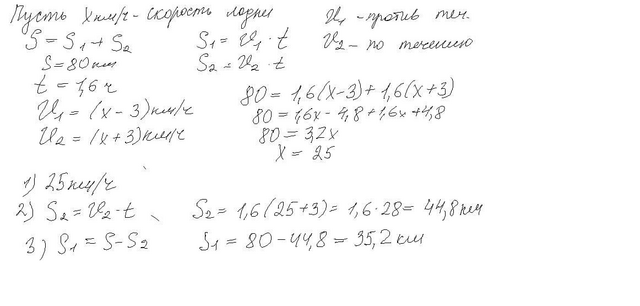 Пусть x км/ч - скорость лодки V₁ - против теч.
S = S₁ + S₂ S₁ = V₁ · t V₂ - по течению
S = 80 км S₂ = V₂ · t
t = 1,6 ч 80 = 1,6(x-3) + 1,6(x+3)
V₁ = (x - 3) км/ч 80 = 1,6x - 4,8 + 1,6x + 4,8
V₂ = (x + 3) км/ч 80 = 3,2x
x = 25
1) 25 км/ч
2) S₂ = V₂ · t S₂ = 1,6(25+3) = 1,6 · 28 = 44,8 км
3) S₁ = S - S₂ S₁ = 80 - 44,8 = 35,2 км